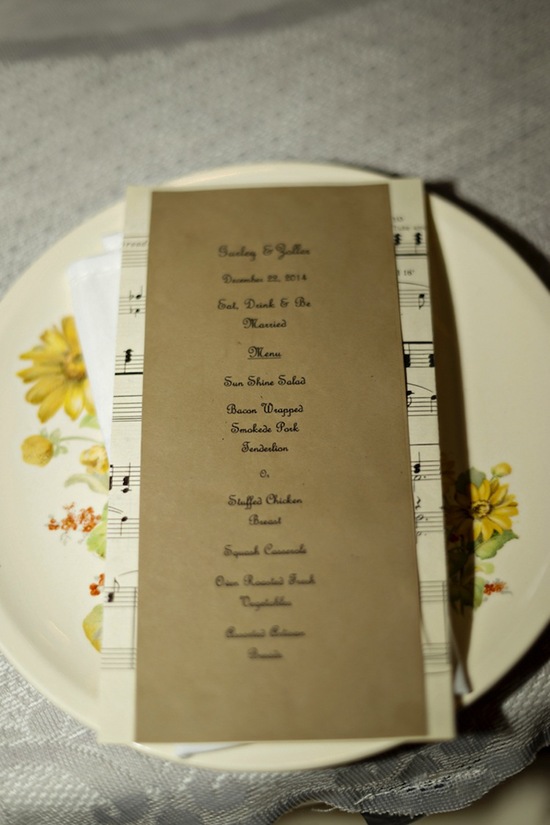 & Zoller
December 22, 2014
Eat, Drink & Be
Married
Menu
Sun Shine Salad
Bacon Wrapped
Smokede Pork
Tenderlion
Or
Stuffed Chicken
Breast
Squash Casserole
Oven Roasted Fresh
Vegetables
Assorted Artisan
Breads